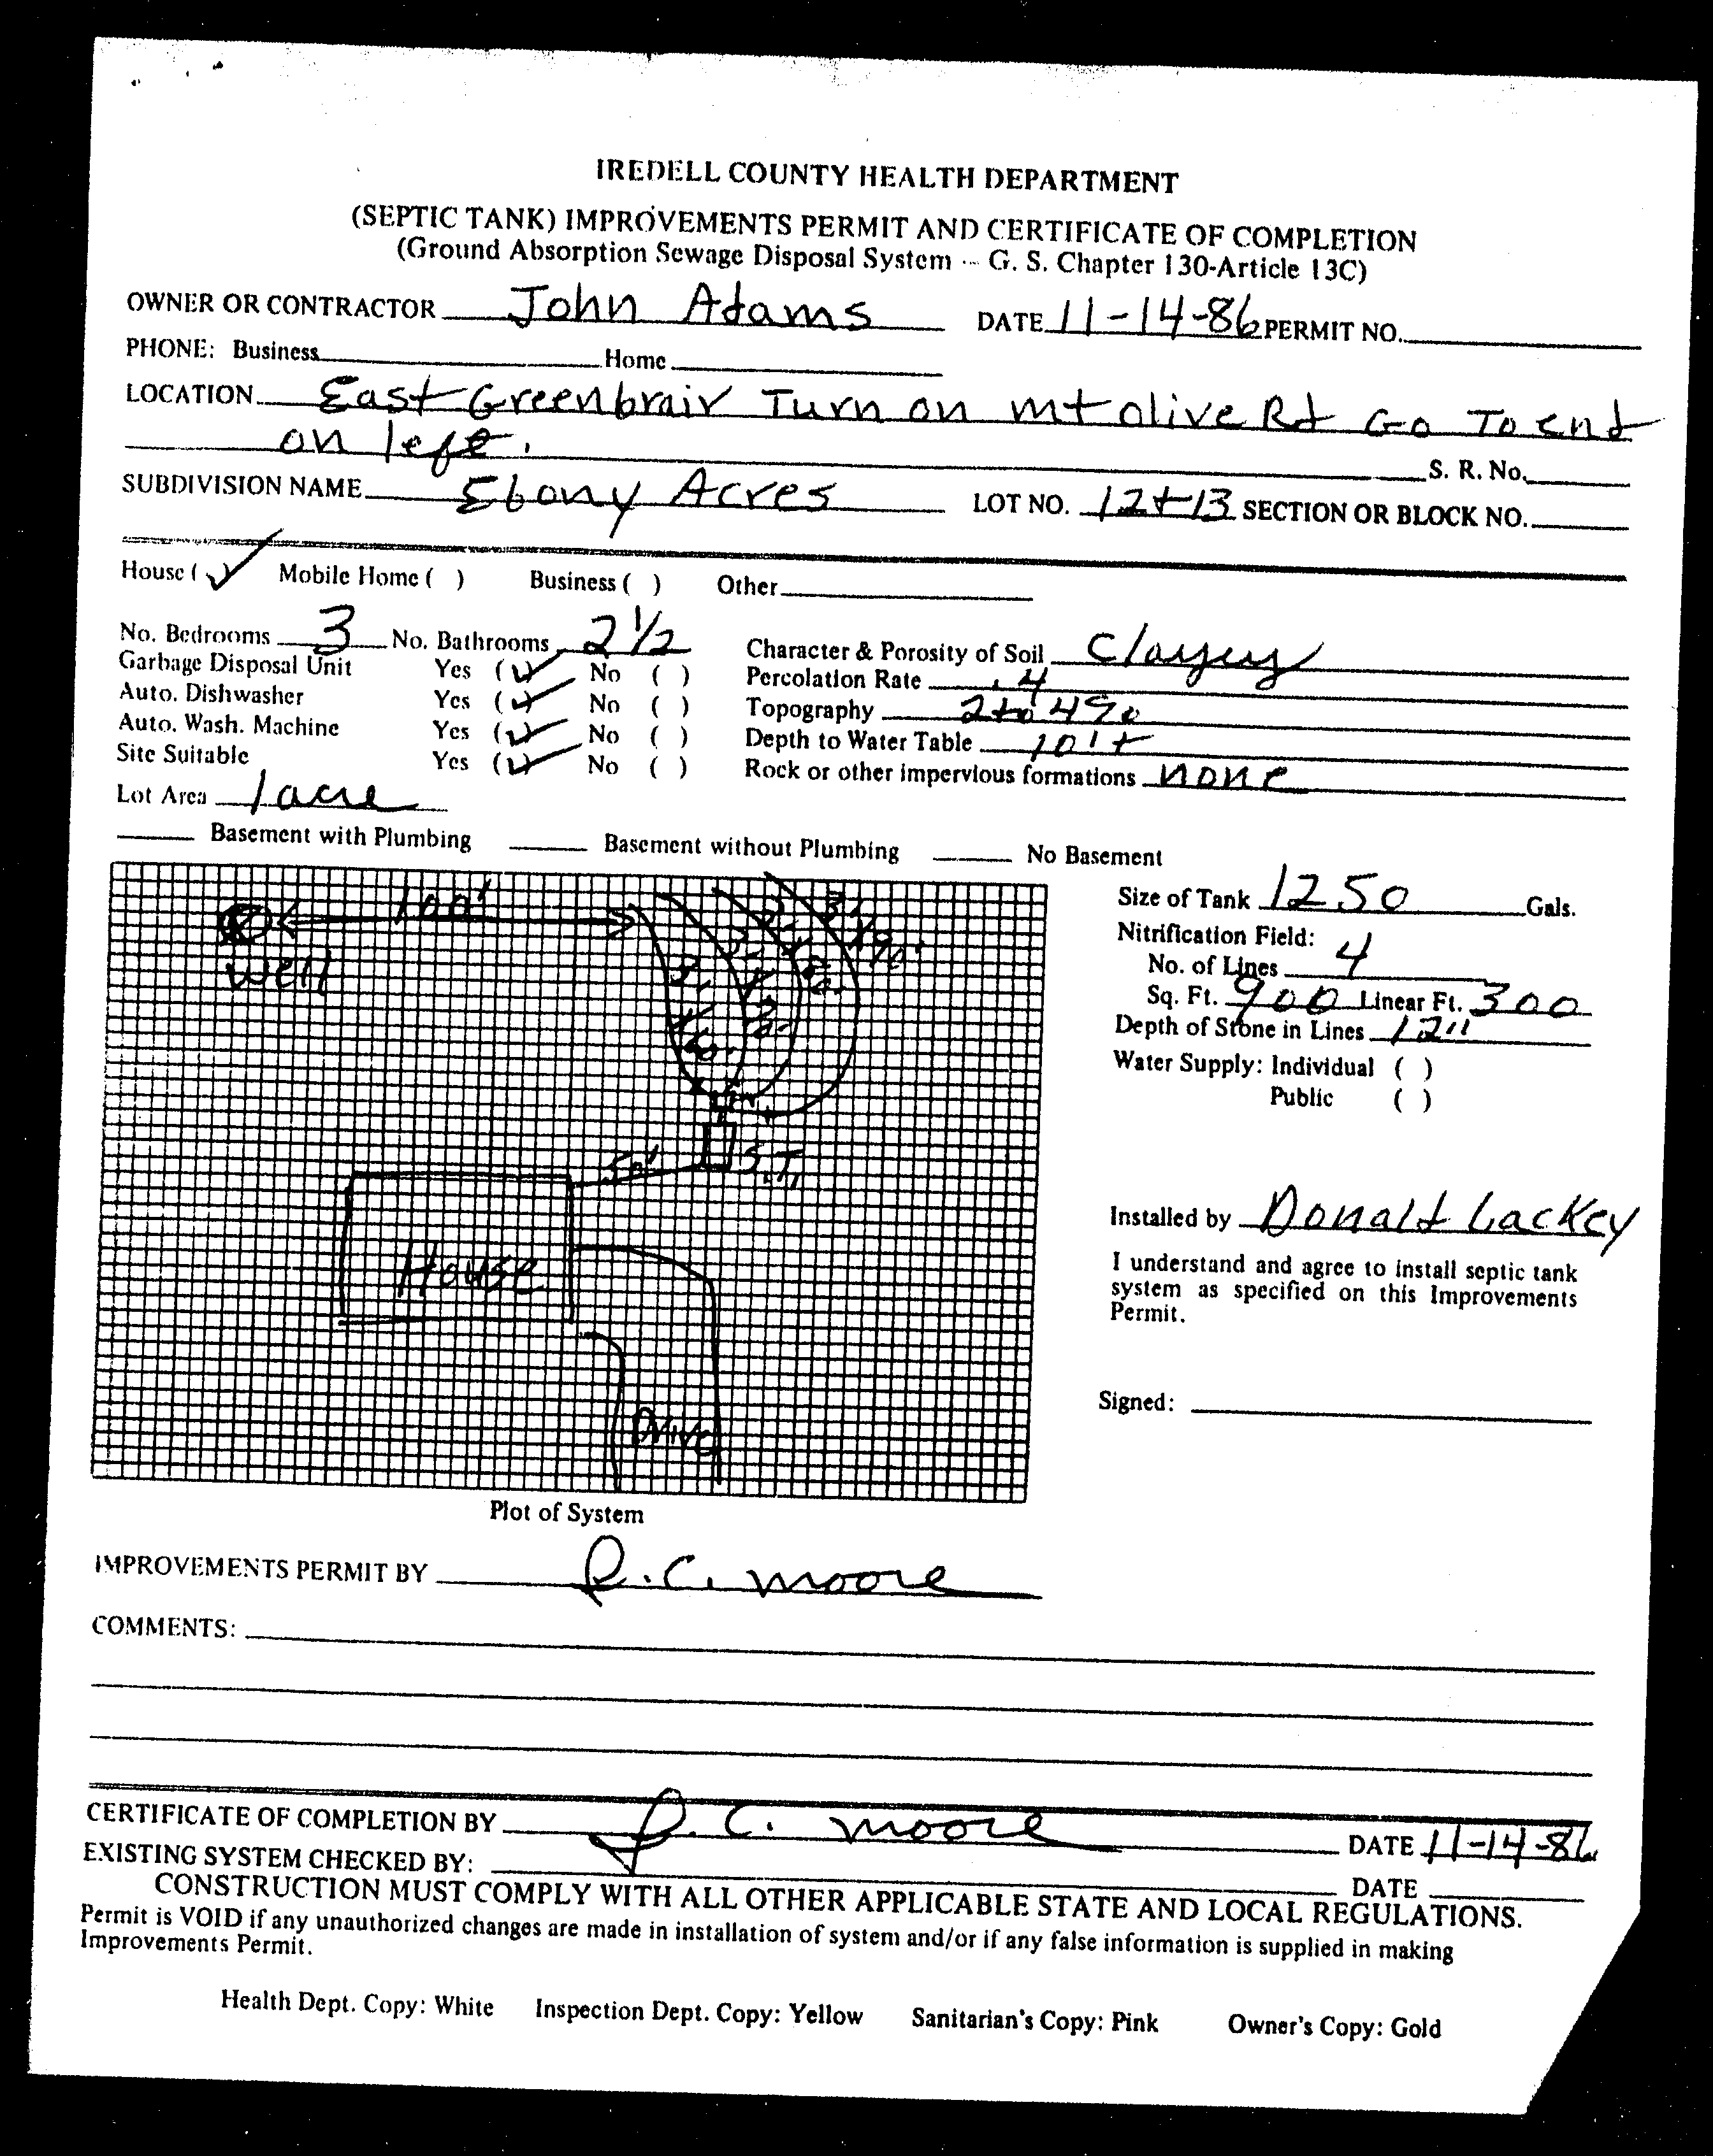 IREDELL COUNTY HEALTH DEPARTMENT
(SEPTIC TANK) IMPROVEMENTS PERMIT AND CERTIFICATE OF COMPLETION
(Ground Absorption Sewage Disposal System -- G. S. Chapter 130-Article 13C)
OWNER OR CONTRACTOR John Adams DATE 11-14-86 PERMIT NO.
PHONE: Business Home
LOCATION East Greenbrair Turn on mt olive Rd Go To end
on left.
S. R. No.
SUBDIVISION NAME Ebony Acres LOT NO. 12+13 SECTION OR BLOCK NO.
House (✓) Mobile Home ( ) Business ( ) Other
No. Bedrooms 3 No. Bathrooms 2 1/2 Character & Porosity of Soil Clayey
Garbage Disposal Unit Yes (✓) No ( ) Percolation Rate .4
Auto. Dishwasher Yes (✓) No ( ) Topography 2 to 4%
Auto. Wash. Machine Yes (✓) No ( ) Depth to Water Table 10'+
Site Suitable Yes (✓) No ( ) Rock or other impervious formations none
Lot Area 1 acre
Basement with Plumbing Basement without Plumbing No Basement
100'
Well
50' S.T.
House
Drive
Size of Tank 1250 Gals.
Nitrification Field:
No. of Lines 4
Sq. Ft. 900 Linear Ft. 300
Depth of Stone in Lines 12"
Water Supply: Individual ( )
Public ( )
Installed by Donald Lackey
I understand and agree to install septic tank
system as specified on this Improvements
Permit.
Signed:
Plot of System
IMPROVEMENTS PERMIT BY R.C. moore
COMMENTS:
CERTIFICATE OF COMPLETION BY R.C. moore DATE 11-14-86
EXISTING SYSTEM CHECKED BY: DATE
CONSTRUCTION MUST COMPLY WITH ALL OTHER APPLICABLE STATE AND LOCAL REGULATIONS.
Permit is VOID if any unauthorized changes are made in installation of system and/or if any false information is supplied in making
Improvements Permit.
Health Dept. Copy: White Inspection Dept. Copy: Yellow Sanitarian's Copy: Pink Owner's Copy: Gold